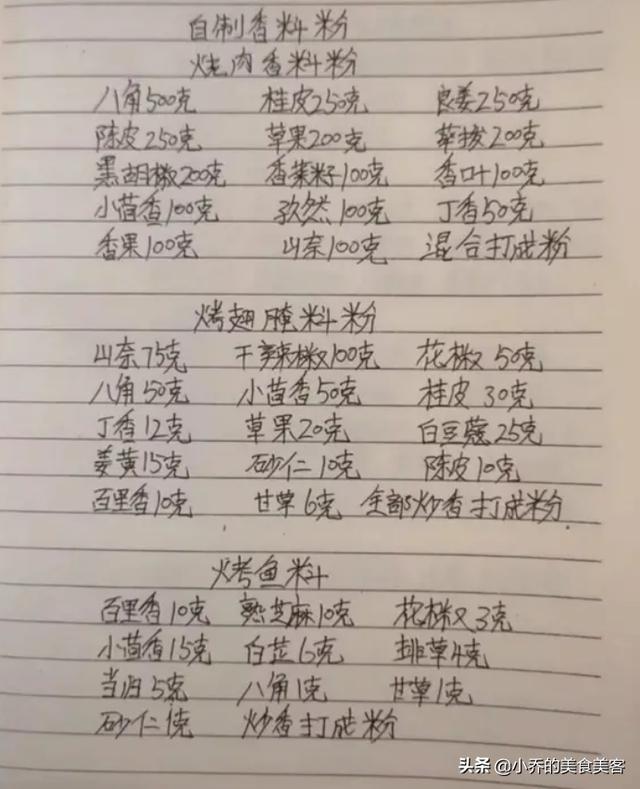 自制香料粉
烧肉香料粉
八角500克 桂皮250克 良姜250克
陈皮250克 草果200克 荜拨200克
黑胡椒200克 香菜籽100克 香叶100克
小茴香100克 孜然100克 丁香50克
香果100克 山奈100克 混合打成粉
烤翅腌料粉
山奈75克 干辣椒100克 花椒50克
八角50克 小茴香50克 桂皮30克
丁香12克 草果20克 白豆蔻25克
姜黄15克 砂仁10克 陈皮10克
百里香10克 甘草6克 全部炒香打成粉
烤鱼料
百里香10克 熟芝麻10克 花椒3克
小茴香15克 白芷6克 排草4克
当归5克 八角1克 甘草1克
砂仁1克 炒香打成粉
头条 @小乔的美食美客